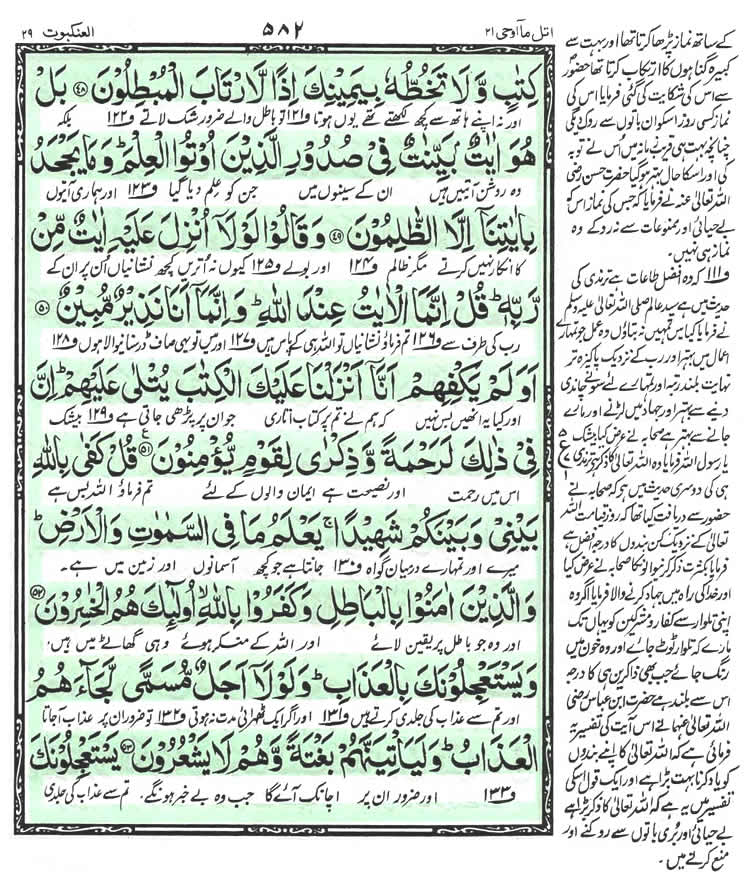 اتل مآ اوحی ۲۱
۵۸۲
العنکبوت ۲۹
كِتٰبٍ وَّلَا تَخُطُّهٗ بِیَمِیْنِكَ اِذًا لَّارْتَابَ الْمُبْطِلُوْنَ ﴿۴۸﴾ بَلْ
اور نہ اپنے ہاتھ سے کچھ لکھتے تھے یوں ہوتا و۱۲۱ تو باطل والے ضرور شک لاتے و۱۲۲ بلکہ
هُوَ اٰیٰتٌۢ بَیِّنٰتٌ فِیْ صُدُوْرِ الَّذِیْنَ اُوْتُوا الْعِلْمَ ؕ وَمَا یَجْحَدُ
وہ روشن آیتیں ہیں ان کے سینوں میں جن کو علم دیا گیا و۱۲۳ اور ہماری آیتوں
بِاٰیٰتِنَاۤ اِلَّا الظّٰلِمُوْنَ ﴿۴۹﴾ وَقَالُوْا لَوْلَاۤ اُنْزِلَ عَلَیْهِ اٰیٰتٌ مِّنْ
کا انکار نہیں کرتے مگر ظالم و۱۲۴ اور بولے و۱۲۵ کیوں نہ اُتریں کچھ نشانیاں اُن پر ان کے
رَّبِّهٖ ؕ قُلْ اِنَّمَا الْاٰیٰتُ عِنْدَ اللّٰهِ ؕ وَاِنَّمَاۤ اَنَا نَذِیْرٌ مُّبِیْنٌ ﴿۵۰﴾
رب کی طرف سے و۱۲۶ تم فرماؤ نشانیاں تو اللہ ہی کے پاس ہیں و۱۲۷ اور میں تو یہی صاف ڈر سنانے والا ہوں و۱۲۸
اَوَلَمْ یَكْفِهِمْ اَنَّاۤ اَنْزَلْنَا عَلَیْكَ الْكِتٰبَ یُتْلٰی عَلَیْهِمْ ؕ اِنَّ
اور کیا یہ انھیں بس نہیں کہ ہم نے تم پر کتاب اُتاری جو ان پر پڑھی جاتی ہے و۱۲۹ بیشک
فِیْ ذٰلِكَ لَرَحْمَةً وَّذِكْرٰی لِقَوْمٍ یُّؤْمِنُوْنَ ﴿۵۱﴾ قُلْ كَفٰی بِاللّٰهِ
اس میں رحمت اور نصیحت ہے ایمان والوں کے لئے تم فرماؤ اللہ بس ہے
بَیْنِیْ وَبَیْنَكُمْ شَهِیْدًا ۚ یَعْلَمُ مَا فِی السَّمٰوٰتِ وَالْاَرْضِ ؕ
میرے اور تمہارے درمیان گواہ و۱۳۰ جانتا ہے جو کچھ آسمانوں اور زمین میں ہے۔
وَالَّذِیْنَ اٰمَنُوْا بِالْبَاطِلِ وَكَفَرُوْا بِاللّٰهِ ۙ اُولٰٓئِكَ هُمُ الْخٰسِرُوْنَ ﴿۵۲﴾
اور وہ جو باطل پر یقین لائے اور اللہ کے منکر ہوئے وہی گھاٹے میں ہیں۔
وَیَسْتَعْجِلُوْنَكَ بِالْعَذَابِ ؕ وَلَوْلَاۤ اَجَلٌ مُّسَمًّی لَّجَآءَهُمُ
اور تم سے عذاب کی جلدی کرتے ہیں و۱۳۱ اور اگر ایک ٹھہرائی مدت نہ ہوتی و۱۳۲ تو ضرور ان پر عذاب آجاتا
الْعَذَابُ ؕ وَلَیَاْتِیَنَّهُمْ بَغْتَةً وَّهُمْ لَا یَشْعُرُوْنَ ﴿۵۳﴾ یَسْتَعْجِلُوْنَكَ
و۱۳۳ اور ضرور ان پر اچانک آئے گا جب وہ بے خبر ہونگے۔ تم سے عذاب کی جلدی
کے ساتھ نماز پڑھا کرتا تھا اور بہت سے
کبیرہ گناہوں کا ارتکاب کرتا تھا حضور
سے اس کی شکایت کی گئی فرمایا اس کی
نماز کسی روز اسکو ان باتوں سے روک دیگی
چنانچہ بہت ہی قریب زمانہ میں اس نے توبہ
کی اور اسکا حال بہتر ہوگیا حضرت حسن رضی
اللہ تعالٰی عنہ نے فرمایا کہ جس کی نماز اس کو
بے حیائی اور ممنوعات سے نہ روکے وہ
نماز ہی نہیں۔
و۱۱۱ کہ وہ افضل طاعات ہے ترمذی کی
حدیث میں ہے سید عالم صلی اللہ تعالٰی علیہ وسلم
نے فرمایا کیا میں تمہیں نہ بتاؤں وہ عمل جو تمہارے
اعمال میں بہتر اور رب کے نزدیک پاکیزہ تر
نہایت بلند رتبہ اور تمہارے لئے سونے چاندی
دینے سے بہتر اور جہاد میں لڑنے اور مارے
جانے سے بہتر ہے صحابہ نے عرض کیا بیشک
یا رسول اللہ فرمایا وہ اللہ تعالٰی کا ذکر ہے ترمذی
ہی کی دوسری حدیث میں ہے کہ صحابہ نے
حضور سے دریافت کیا تھا کہ روز قیامت اللہ
تعالٰی کے نزدیک کن بندوں کا درجہ افضل ہے
فرمایا بکثرت ذکر کرنیوالوں کا صحابہ نے عرض کیا
اور خدا کی راہ میں جہاد کرنے والا فرمایا اگر وہ
اپنی تلوار سے کفار و مشرکین کو یہاں تک
مارے کہ تلوار ٹوٹ جائے اور وہ خون میں
رنگ جائے جب بھی ذاکرین ہی کا درجہ
اس سے بلند ہے حضرت ابن عباس رضی
اللہ تعالٰی عنہما نے اس آیت کی تفسیر یہ
فرمائی ہے کہ اللہ تعالٰی کا اپنے بندوں
کو یاد کرنا بہت بڑا ہے اور ایک قول اسکی
تفسیر میں یہ ہے کہ اللہ تعالٰی کا ذکر بڑا ہے
بے حیائی اور بُری باتوں سے روکنے اور
منع کرنے میں۔